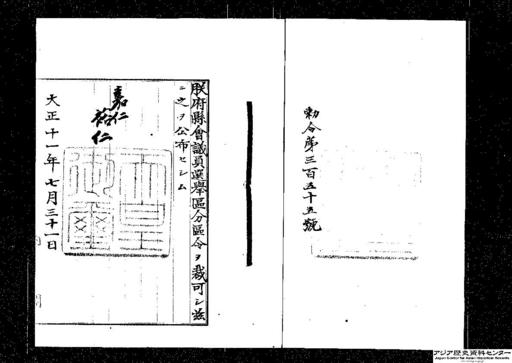 勅令第三百五十五號
朕府縣會議員選擧區分區令ヲ裁可シ茲
ニ之ヲ公布セシム
嘉仁
裕仁
大正十一年七月三十一日
アジア歴史資料センター
Japan Center for Asian Historical Records